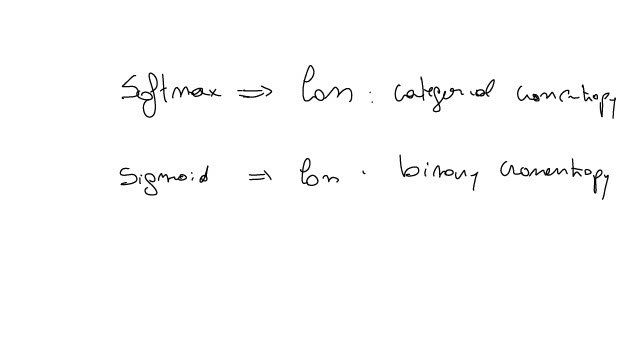 Softmax => loss : categorical crossentropy
Sigmoid => loss : binary crossentropy